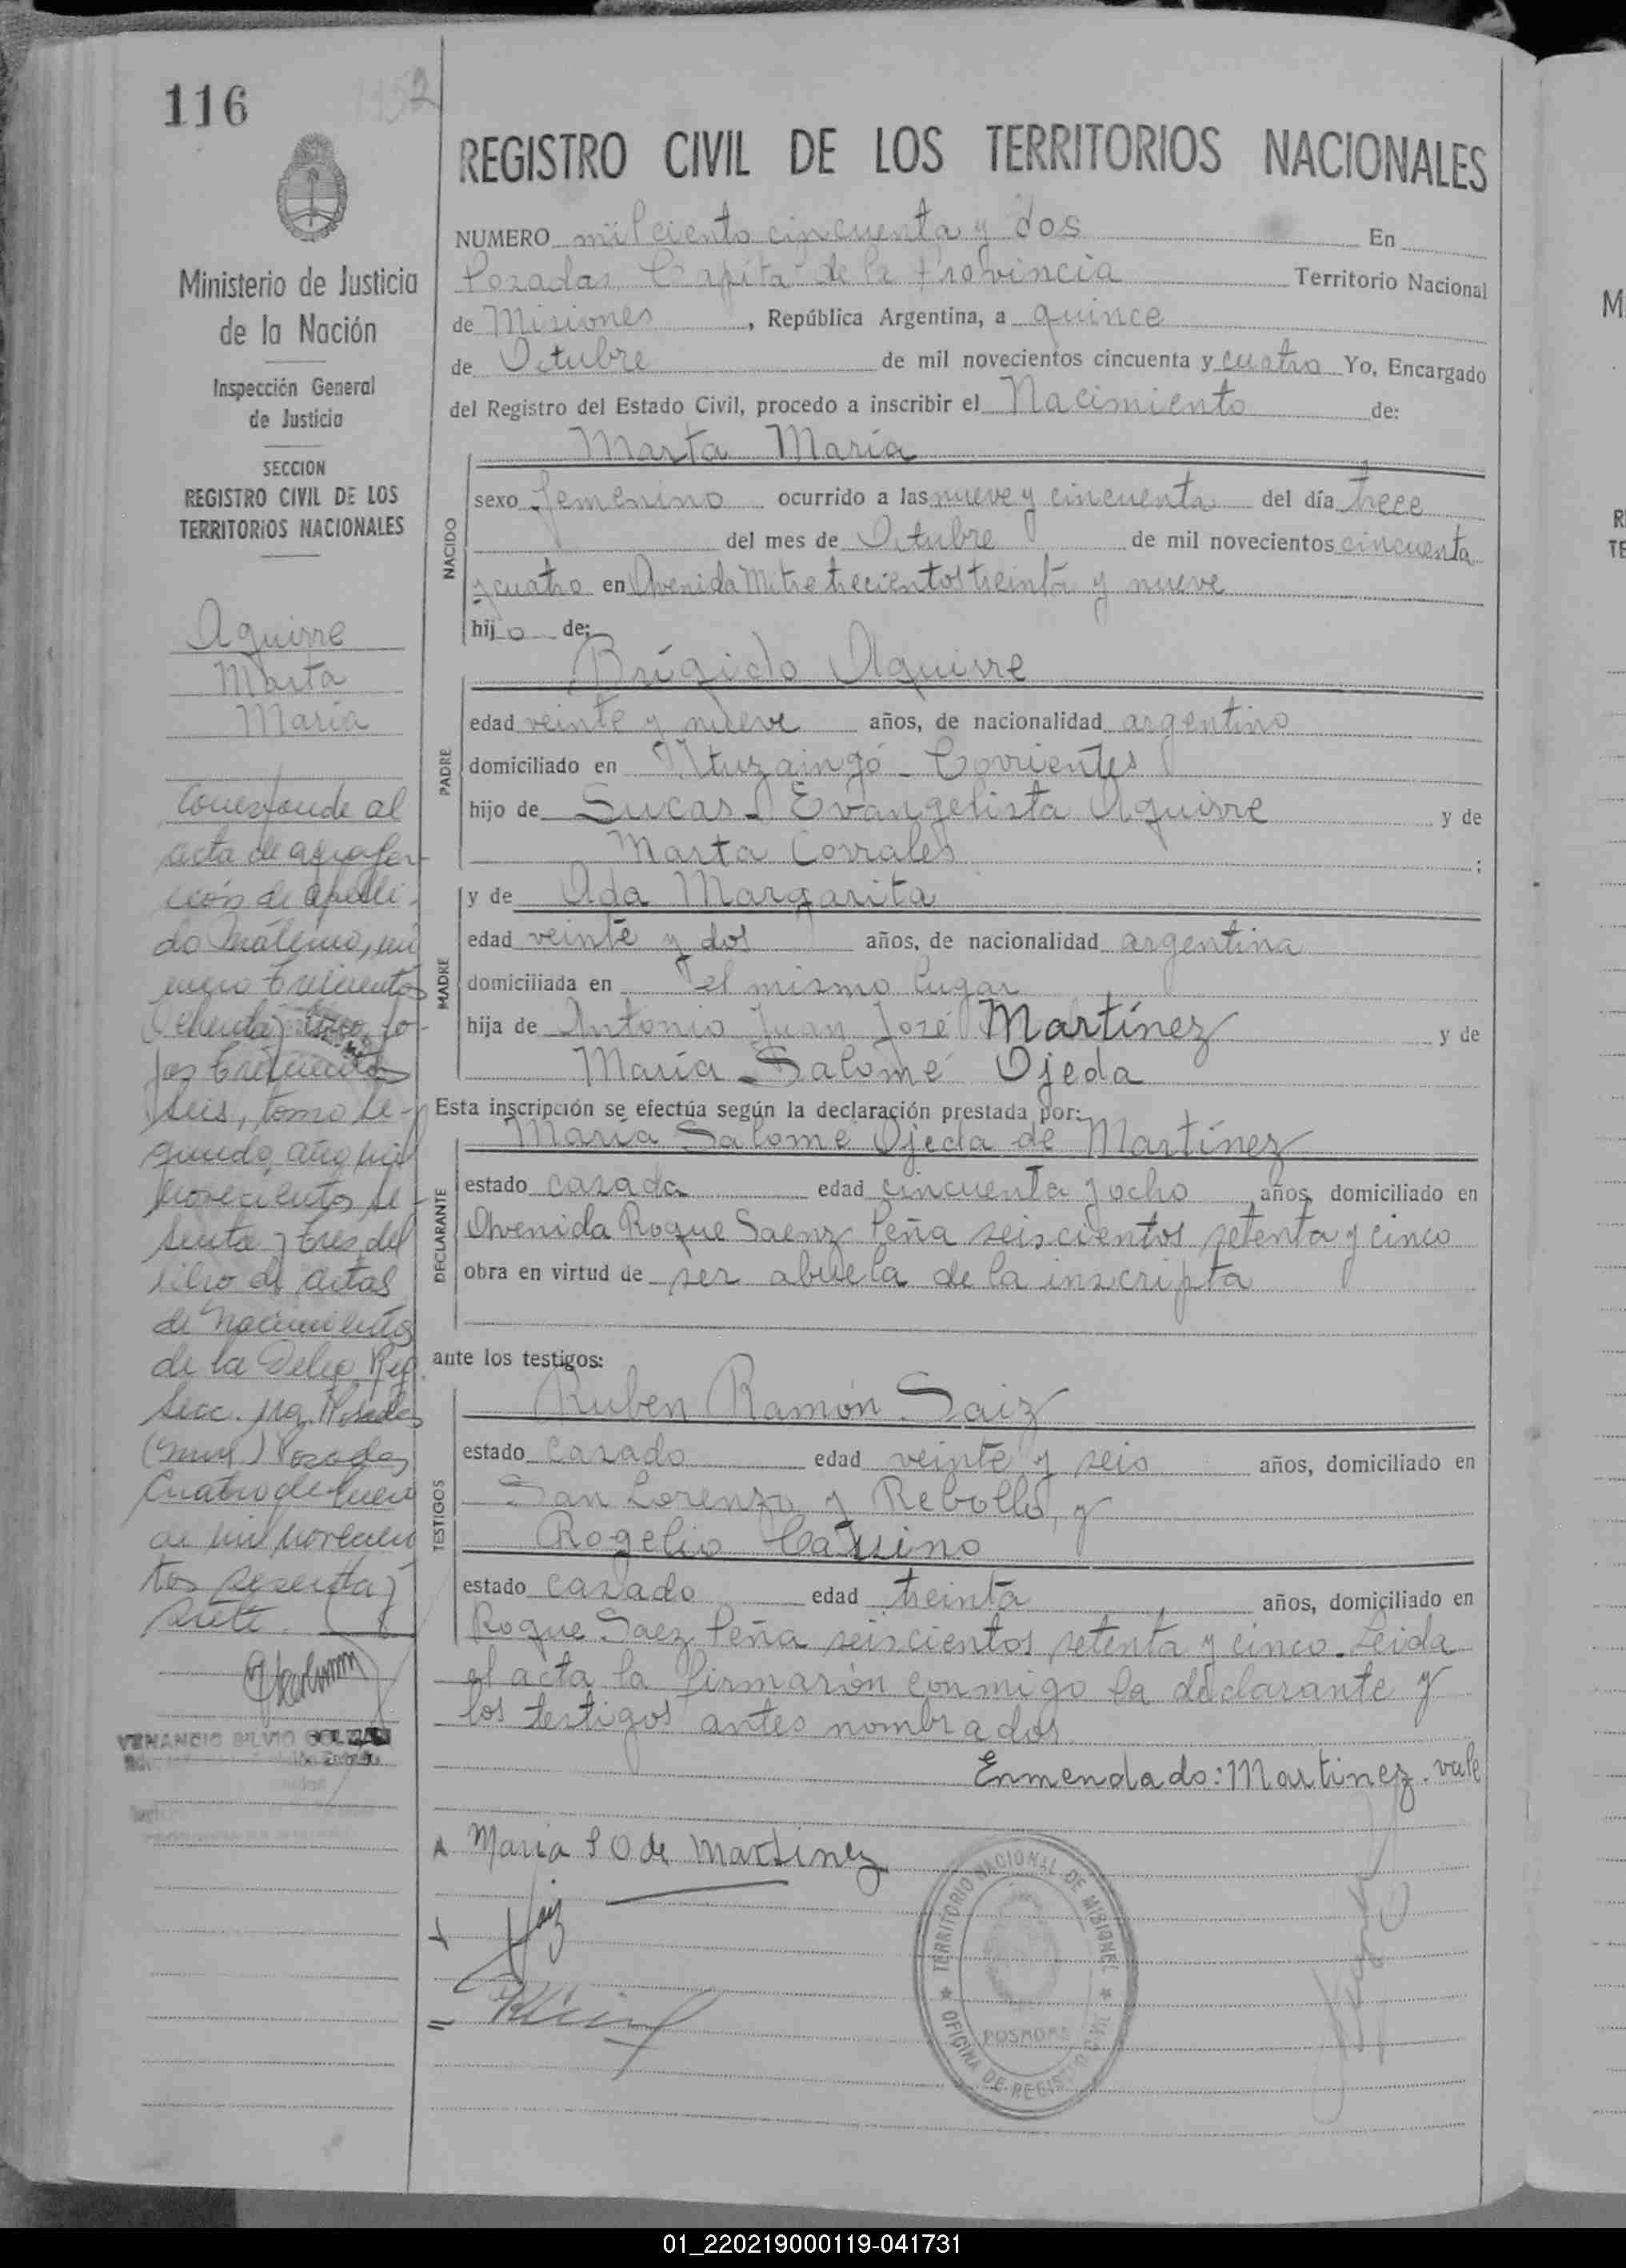 116
1152
REGISTRO CIVIL DE LOS TERRITORIOS NACIONALES
Ministerio de Justicia
de la Nación
Inspección General
de Justicia
SECCION
REGISTRO CIVIL DE LOS
TERRITORIOS NACIONALES
Aguirre
Marta
María
Corresponde al
acta de
ción de apelli-
do materno, nú
mero trescientos
fo-
jas trescientos
seis, tomo se-
gundo, año mil
novecientos se-
senta y tres del
libro de actas
de Nacimientos
de la Deleg. Reg.
Secc. Posadas
Posadas,
Cuatro de Enero
de mil novecien
tos sesenta y
siete.
VENANCIO SILVIO
NUMERO mil ciento cincuenta y dos En
Posadas, Capital de la Provincia Territorio Nacional
de Misiones, República Argentina, a quince
de Octubre de mil novecientos cincuenta y cuatro Yo, Encargado
del Registro del Estado Civil, procedo a inscribir el Nacimiento de:
Marta María
NACIDO
sexo femenino ocurrido a las nueve y cincuenta del día trece
del mes de Octubre de mil novecientos cincuenta
y cuatro en Avenida Mitre trecientos treinta y nueve
hij a de:
Brígido Aguirre
PADRE
edad veinte y nueve años, de nacionalidad argentino
domiciliado en Ituzaingó - Corrientes
hijo de Lucas Evangelista Aguirre y de
Marta Corrales ;
y de Ada Margarita
MADRE
edad veinte y dos años, de nacionalidad argentina
domiciliada en el mismo lugar
hija de Antonio Juan José Martínez y de
María Salomé Ojeda
Esta inscripción se efectúa según la declaración prestada por:
María Salomé Ojeda de Martínez
DECLARANTE
estado casada edad cincuenta y ocho años, domiciliado en
Avenida Roque Saenz Peña seiscientos setenta y cinco
obra en virtud de ser abuela de la inscripta
ante los testigos:
Ruben Ramón Saiz
TESTIGOS
estado casado edad veinte y seis años, domiciliado en
San Lorenzo y Rebollo, y
Rogelio Cassino
estado casado edad treinta años, domiciliado en
Roque Saez Peña seiscientos setenta y cinco. Leida
el acta la firmarón conmigo la declarante y
los testigos antes nombrados.
Enmendado: Martinez. vale
Maria S O de Martinez
Saiz
TERRITORIO NACIONAL DE MISIONES
POSADAS
OFICINA DE REGISTRO CIVIL
M
R
TE
01_220219000119-041731